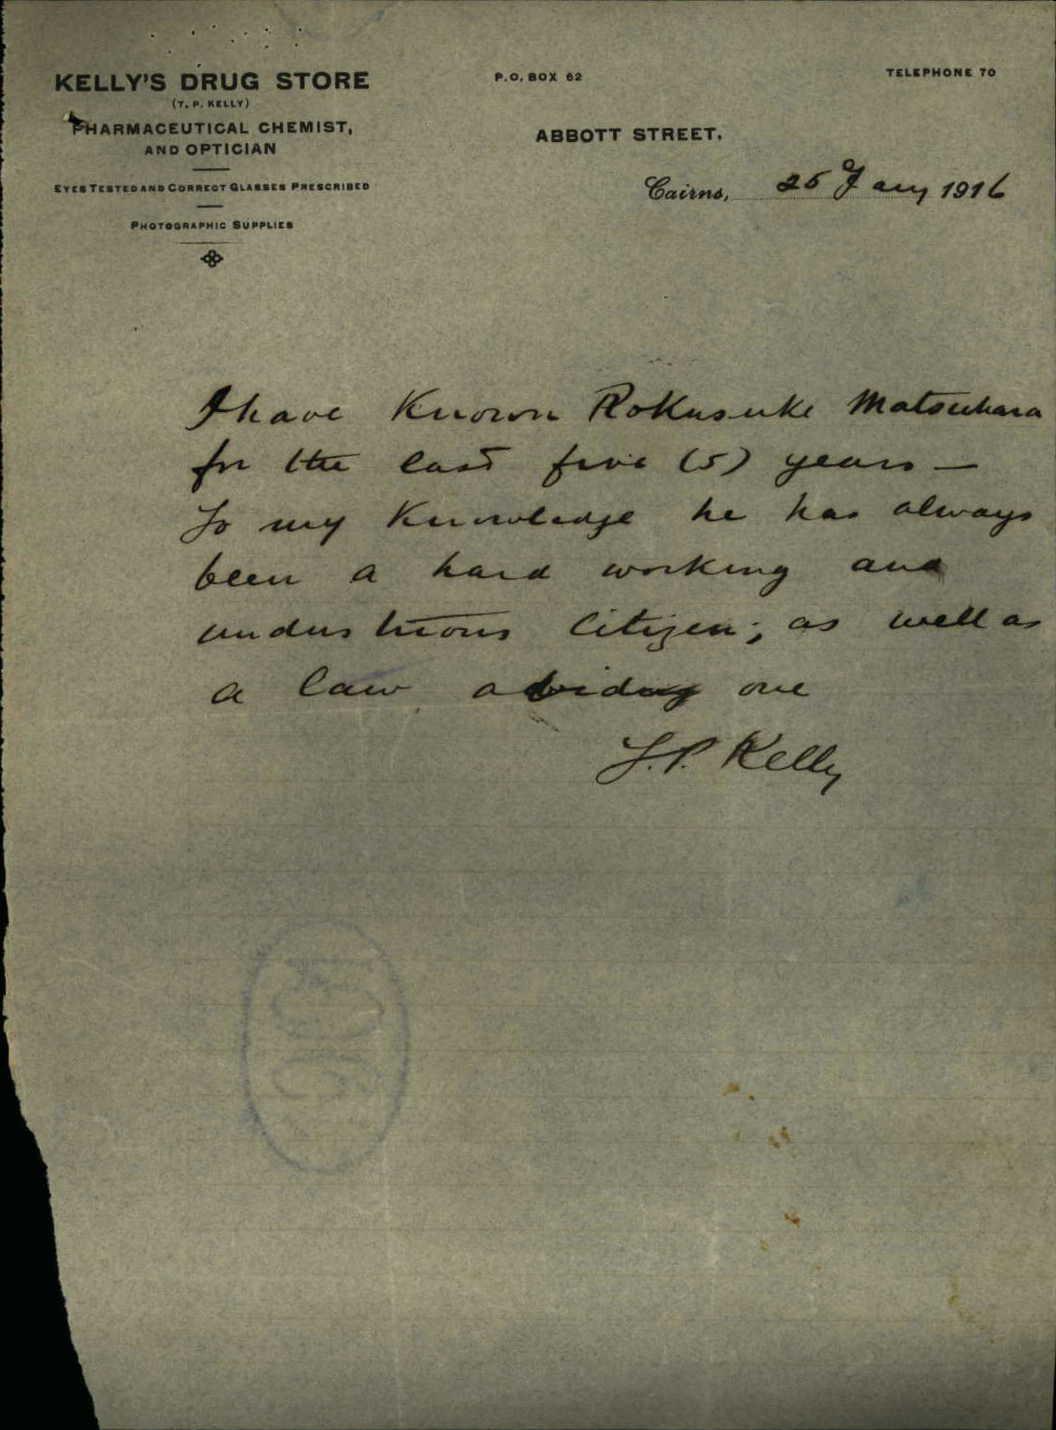 KELLY'S DRUG STORE
(T. P. KELLY)
PHARMACEUTICAL CHEMIST,
AND OPTICIAN
EYES TESTED AND CORRECT GLASSES PRESCRIBED
PHOTOGRAPHIC SUPPLIES
P.O. BOX 62
TELEPHONE 70
ABBOTT STREET,
Cairns, 25 Jany 1916
I have Known Rokusuke Matsuhara
for the last five (5) years —
To my Knowledge he has always
been a hard working and
industrious Citizen; as well as
a law abiding one
T.P. Kelly